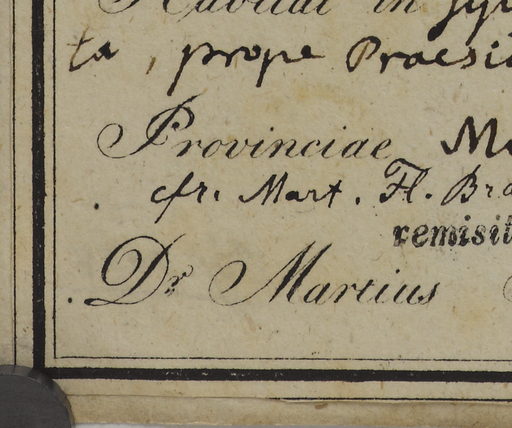 Habitat in
ta, prope
Provinciae
cfr. Mart. Fl.
remisit
Dr Martius